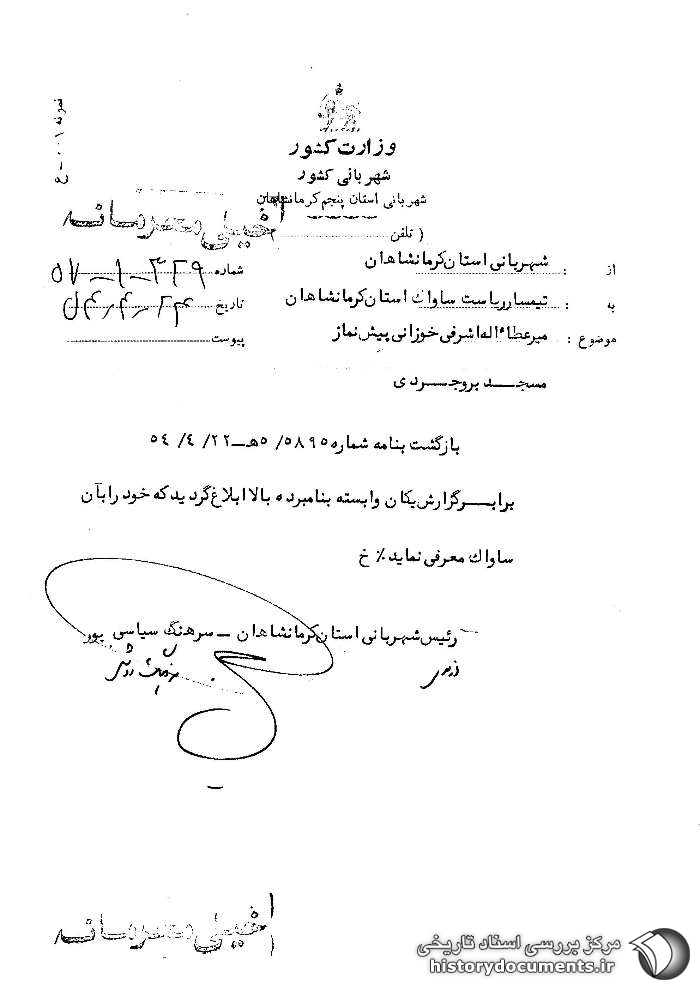 نمونه ۰۰۱-ج
وزارت کشور
شهربانی کشور
شهربانی استان پنجم کرمانشاهان
خیلی محرمانه
( تلفن )
از : شهربانی استان کرمانشاهان
شماره ۵۷-۱-۳۲۹
به : تیمسار ریاست ساواک استان کرمانشاهان
تاریخ ۵۴-۴-۲۴
موضوع : میرعطاءاله اشرفی خوزانی پیش نماز
پیوست
مسجد بروجردی
بازگشت بنامه شماره ۵۸۹۵/ ۵هـ - ۲۲/ ۴/ ۵۴
برابر گزارش یکان وابسته بنامبرده بالا ابلاغ گردید که خود را بآن
ساواک معرفی نماید ٪ خ
رئیس شهربانی استان کرمانشاهان – سرهنگ سیاسی پور
خیلی محرمانه
مرکز بررسی اسناد تاریخی
historydocuments.ir